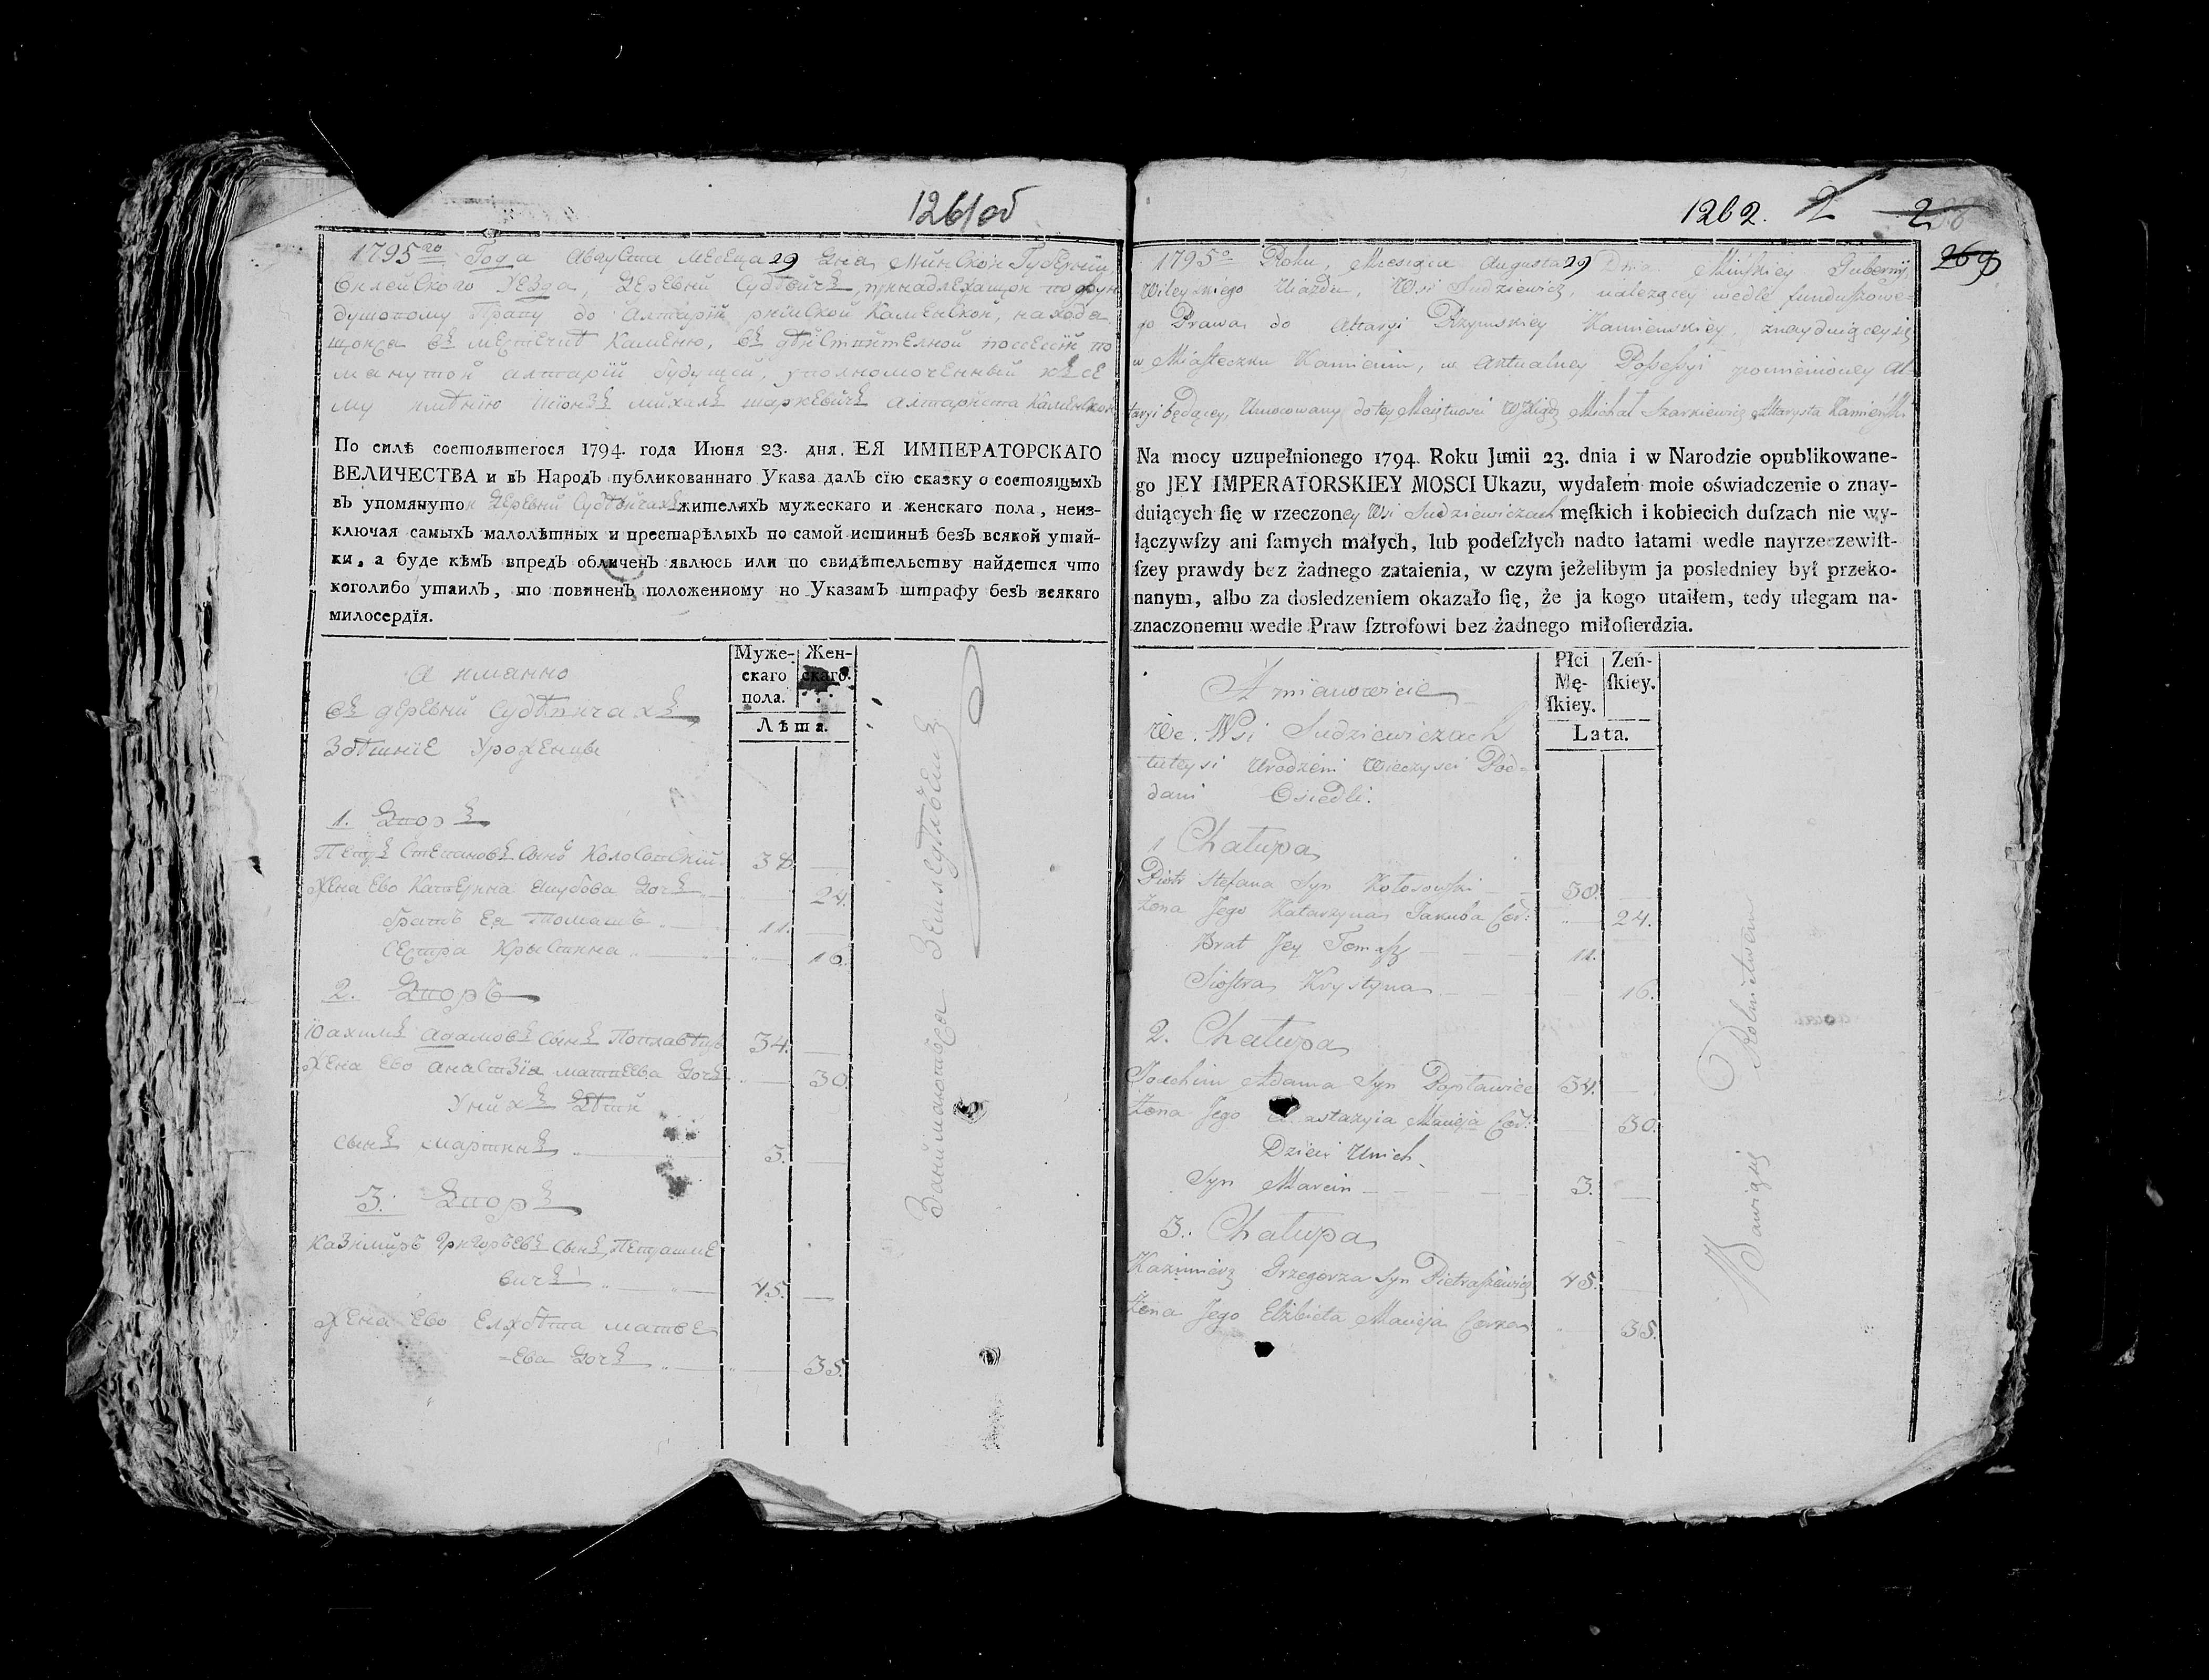 1261об
1795го Года Августа месеца 29 дня Минской Губернии,
Вилейского уезда, деревни Судзевичъ, принадлежащой по фун
душовому Праву до Алтарии римской Каменской, находя
щойся въ местечке Каменю, въ действителной посессии по
мянутой алтарии будущей, уполномоченный къ се
му имению Ксіонзъ Михалъ Шаркевичъ алтариста Каменской
По силѣ состоявшегося 1794. года Июня 23. дня. ЕЯ ИМПЕРАТОРСКАГО
ВЕЛИЧЕСТВА и въ Народъ публикованнаго Указа далъ сїю сказку о состоящыхъ
въ упомянутой деревни Судзевичахъ жителяхъ мужескаго и женскаго пола, неиз-
ключая самыхъ малолѣтныхъ и престарѣлыхъ по самой истиннѣ безъ всякой утай-
ки, а буде кѣмъ впредъ обличенъ явлюсь или по свидѣтельству найдется что
коголибо утаилъ, то повиненъ положенному по Указамъ штрафу безъ всякаго
милосердїя.
Муже-
скаго
пола.
Жен-
скаго.
Лѣта.
А имянно
въ деревни Судзевичахъ
здешние уроженцы
1. Дворъ
Петръ Степановъ сынъ Колосовский 38.
Жена ево Катерина Якубова дочъ 24.
братъ ея Томашъ 11.
сестра Крыстина 16.
2. Дворъ
Иоахимъ Адамовъ сынъ Поплавецъ 34.
Жена ево Анастазия Матвеева дочъ 30.
У нихъ дети
сынъ Мартинъ 3.
3. Дворъ
Казимиръ Григорьевъ сынъ Петраше
вичъ 45.
Жена ево Елжбета Матве
=ева дочъ 35.
Занимаютъся Земледѣлиемъ
1262. 2 2
269
1795o Roku, Miesiąca Augusta 29 Dnia Mińskiey Guberniy
Wileyskiego Ujazdu, Wsi Sudziewicz, należącey wedle funduszowe=
go Prawa do Altaryi Rzymskiey Kamienskiey, znayduiącey się
w Miasteczku Kamieniu, w aktualney Possessyi pomienioney Al=
taryi będącey, Umocowany do tey Maiętnosci WXiądz Michał Szarkiewicz Altarysta Kamieński
Na mocy uzupełnionego 1794. Roku Junii 23. dnia i w Narodzie opublikowane-
go JEY IMPERATORSKIEY MOSCI Ukazu, wydałem moie oświadczenie o znay-
duiących ſię w rzeczoney Wsi Sudziewiczach męſkich i kobiecich duſzach nie wy-
łączywſzy ani ſamych małych, lub podeſzłych nadto latami wedle nayrzeczewiſt-
ſzey prawdy bez żadnego zataienia, w czym jeżelibym ja posledniey był przeko-
nanym, albo za dosledzeniem okazało ſię, że ja kogo utaiłem, tedy ulegam na-
znaczonemu wedle Praw ſztrofowi bez żadnego miłoſierdzia.
Płci
Mę-
ſkiey.
Zeń-
ſkiey.
Lata.
A mianowicie
We Wsi Sudziewiczach
tuteysi Urodzeni Wieczysci Pod=
dani Osiedli.
1 Chałupa
Piotr Stefana Syn Kołosowski 38.
Zona Jego Katarzyna Jakuba Cor: 24.
Brat Jey Tomasz 11.
Siostra Krystyna 16.
2. Chałupa
Joachim Adama Syn Popławiec 34.
Zona Jego Anastazyia Macieja Cor: 30.
Dzieci Unich
Syn Marcin 3.
3. Chałupa
Kazimierz Grzegorza Syn Pietraszewicz 45.
Zona Jego Elżbieta Macieja Corka 35.
Bawią się Rolnictwem